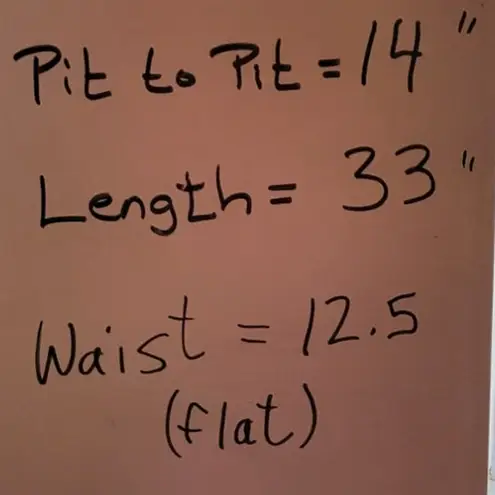 Pit to Pit = 14"
Length = 33"
Waist = 12.5
(flat)